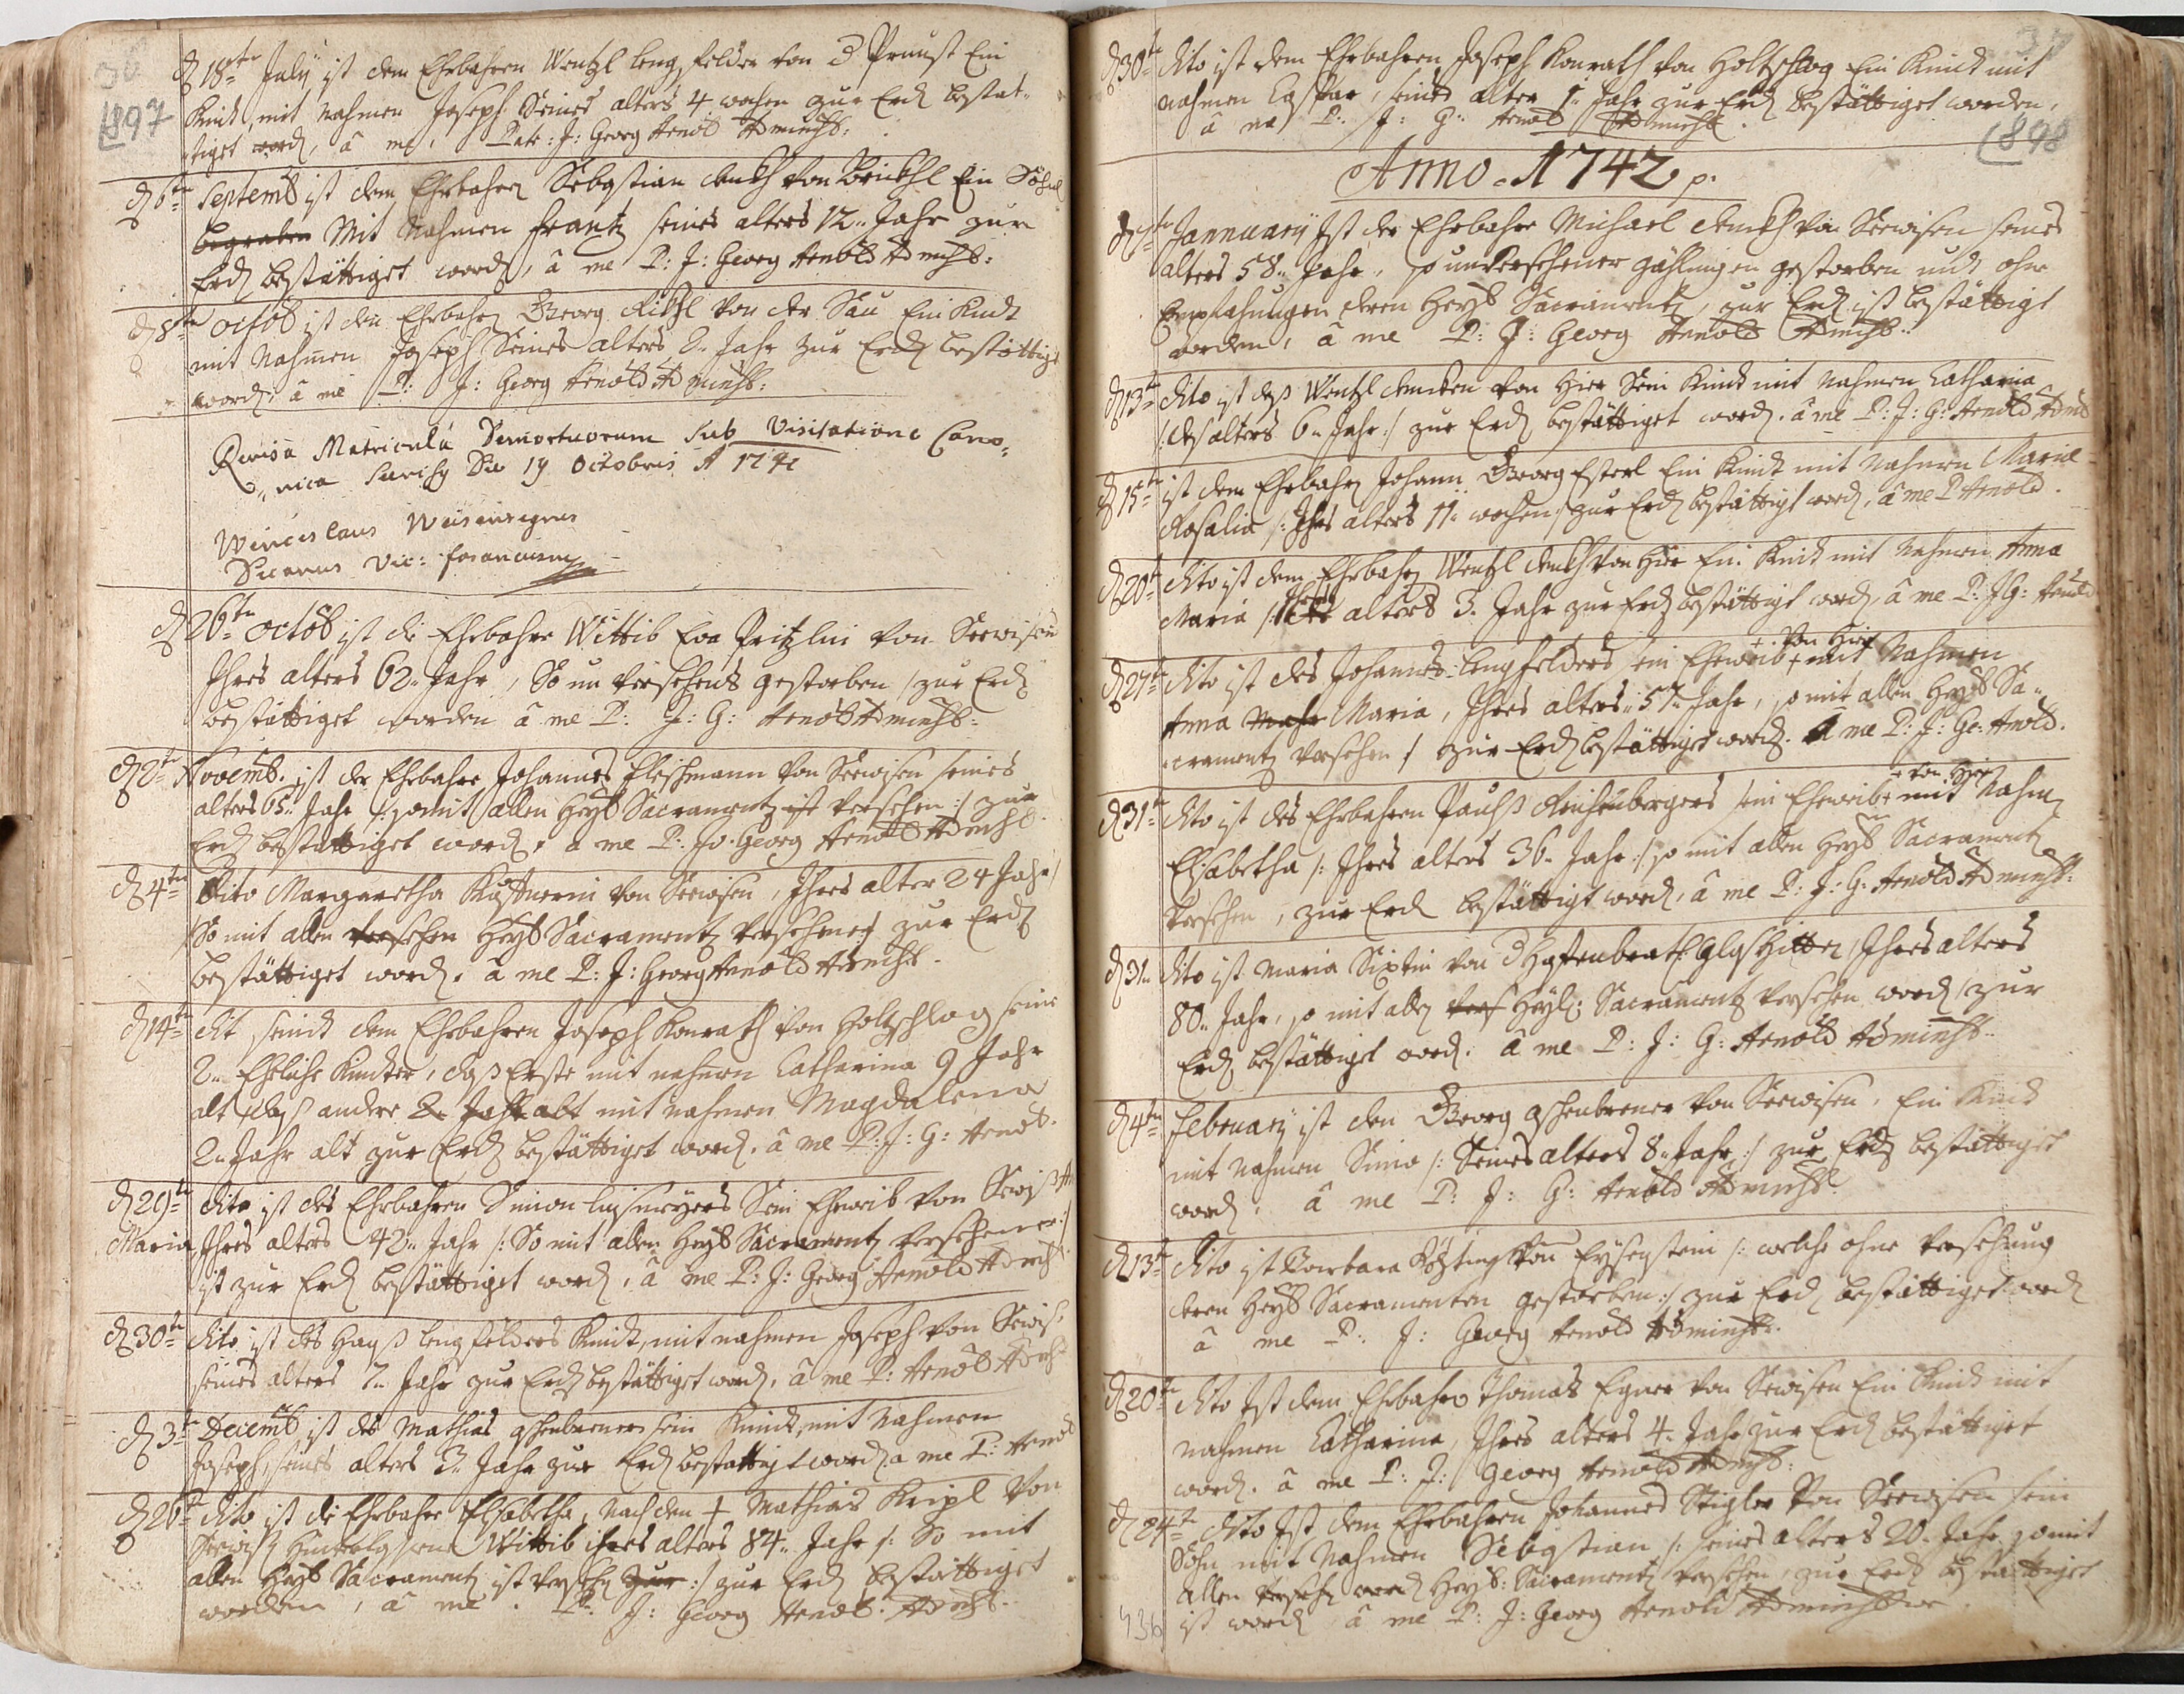 36
1897
d 18ten July ist dem Ehrbahren Wentzl lengfelder von Ein
Kind, mit Nahmen Joseph Seines alters 4 wochen zur Erd bestät-
tiget word, â me, Patr: J: Georg Arnold Administ:
d 6ten Septemb ist dem Ehrbahren Sebastian von Ein Söhnl
begraben Mit Nahmen Frantz seines alters 12.. Jahr zur
Erd bestättiget word, â me P: J: Georg Arnold Admist:
d 8ten octob ist dem Ehrbahren Georg von der Ein Kind
mit Nahmen Joseph Seines alters 2.. Jahr zur Erd bestättiget
word, â me P: J: Georg Arnold Administ:
Revisa Matricula Demortuorum sub Visitatione Cano-
nica Die 19 Octobris A 1741
Winceslaus
Vic: foraneus
d 26ten octob ist die Ehrbahre Wittib Eva von Seewisen
Ihres alters 62.. Jahr, So un Versehents gestorben, zur Erd
bestättiget worden â me P: J: G: Arnold Administ:
d 2ten Novemb. ist der Ehrbahre Johannes Fleischmann von Seewisen seines
alters 65.. Jahr, /: so mit allen Heyl Sacramentz ist versehen :/ zur
Erd bestättiget word, â me P: Jo. Georg Arnold Admist.
d 4ten Dito Margaretha von Seewisen, Ihres alter 24 Jahr
/So mit allen versehen Heyl Sacramentz versehen/ zur Erd
bestättiget word. â me P: J: Georg Arnold Admist.
d 14ten dit, seind dem Ehrbahren Joseph Konrath von Holtzschlag seine
2.. Ehliche Kinder, daß Erste mit nahmen Catharina 9 Jahr
alt, das andere 2. Jahr alt mit nahmen Magdalena
2.. Jahr alt zur Erd bestättiget word. â me P: J: G: Arnold.
d 29ten dito ist des Ehrbahren Simon Sein Eheweib von
Maria, Ihres alters 42.. Jahr /: So mit allen Heyl Sacramentz versehener :/
ist zur Erd bestättiget word, â me P: J: Georg Arnold Admist.
d 30ten dito ist des Hanß lengfelders Kind, mit nahmen Joseph von
seines alters Jahr zur Erd bestättiget word. â me P: Arnold Admist
d 3ten Decemb ist des Mathias sein Kind, mit Nahmen
Joseph, seines alters 3.. Jahr zur Erd bestättigt word â me P: Arnold
d 26ten dito ist die Ehrbahre Elisabetha, Nach dem † Mathias Kripl Von
Wittib ihres alters 84.. Jahr /: So mit
allen Heyl Sacramentz ist versehen zur :/ zur Erd bestättiget
worden, â me. P: J: Georg Arnold. Admist.
37
1898
d 30ten dito ist dem Ehrbahren Joseph Konrath von Holtzschlag Ein Kind mit
nahmen Caspar, seines alter 1.. Jahr zur Erd bestättiget worden.
â me P: J: G: Arnold Administ.
Anno 1742 p.
Jannuarÿ Ist der Ehrbahre Michael von Seewisen seines
alters 58.. Jahr, so gestorben und ohne
deren Heyl Sacramentz, zur Erd ist bestättigt
worden, â me P: J: Georg Arnold Admist.
d 13ten dito ist daß Wentzl von Hier Sein Kind mit nahmen Catharina
/: des alters 6.. Jahr :/ zur Erd bestättiget word. â me P: J: G: Arnold Admist
d 15ten ist dem Ehrbahren Johann Georg Esterl Ein Kind mit Nahmen Maria
Rosalia /: Ihres alters 11.. wochen :/ zur Erd bestättigt word, â me P Arnold.
d 20ten dito ist dem Ehrbahren Wentzl von Hier Ein Kind mit Nahmen Anna
Maria /: Ihres alters 3. Jahr zur Erd bestättigt word, â me P: J G: Arnold
d 27ten dito ist des Johannes lengfelders sein Eheweib + von Hier + mit Nahmen
Anna Maria, Ihres alters.. 57.. Jahr, so mit allen Heyl Sa-
cramentz versehen, zur Erd bestättiget word. â me P: J: Ge: Arnold.
d 31ten dito ist des Ehrbahren Paulß Reichenbergers sein Eheweib + von Hier mit Nahm
Elisabetha /: Ihres alters 36.. Jahr :/ so mit allen Heyl Sacramentz
versehen, zur Erd bestättigt word, â me P: J: G: Arnold Administ:
d 31.. dito ist Maria von Ihres alters
80.. Jahr, so mit allen vers Heyl: Sacramentz versehen word, zur
Erd bestättiget word. â me P: J: G: Arnold Administ..
d 4ten Februarÿ ist den Georg von Seewisen, Ein Kind
mit Nahmen Simo /: Seines alters 8.. Jahr :/ zur Erd bestättiget
word, â me P: J: G: Arnold Administ.
d 13t dito ist Barbara von Eysenstein /: welche ohne versehung
deren Heyl Sacramenten gestorben :/ zur Erd bestättiget word
â me P: J: Georg Arnold Administr.
d 20ten dito Ist dem Ehrbahren Thomas Egner von Seewisen Ein Kind mit
nahmen Catharina, Ihres alters 4.. Jahr zur Erd bestättiget
word. â me P: J: Georg Arnold Admist:
d 24t dito Ist dem Ehrbahren Johannes Stigler Von Seewisen sein
Sohn mit Nahmen Sebastian /: seines alters 20. Jahr so mit
allen versehen word Heyl: Sacramentz versehen, zur Erd bestättiget
ist word â me P: J: Georg Arnold
436